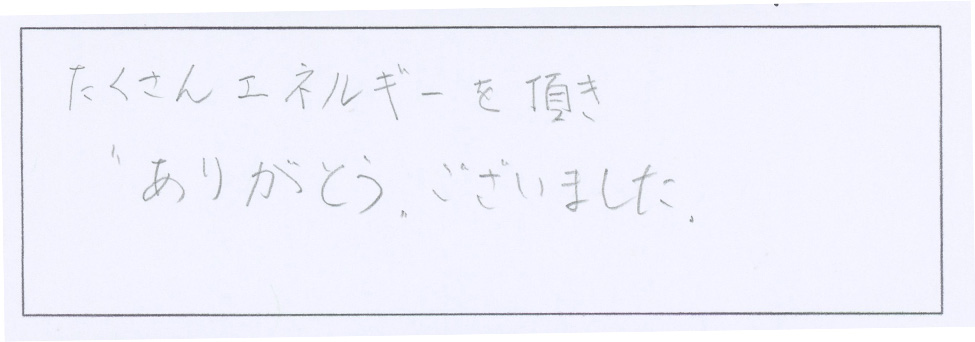 たくさんエネルギーを頂き
〝ありがとう〟ございました.